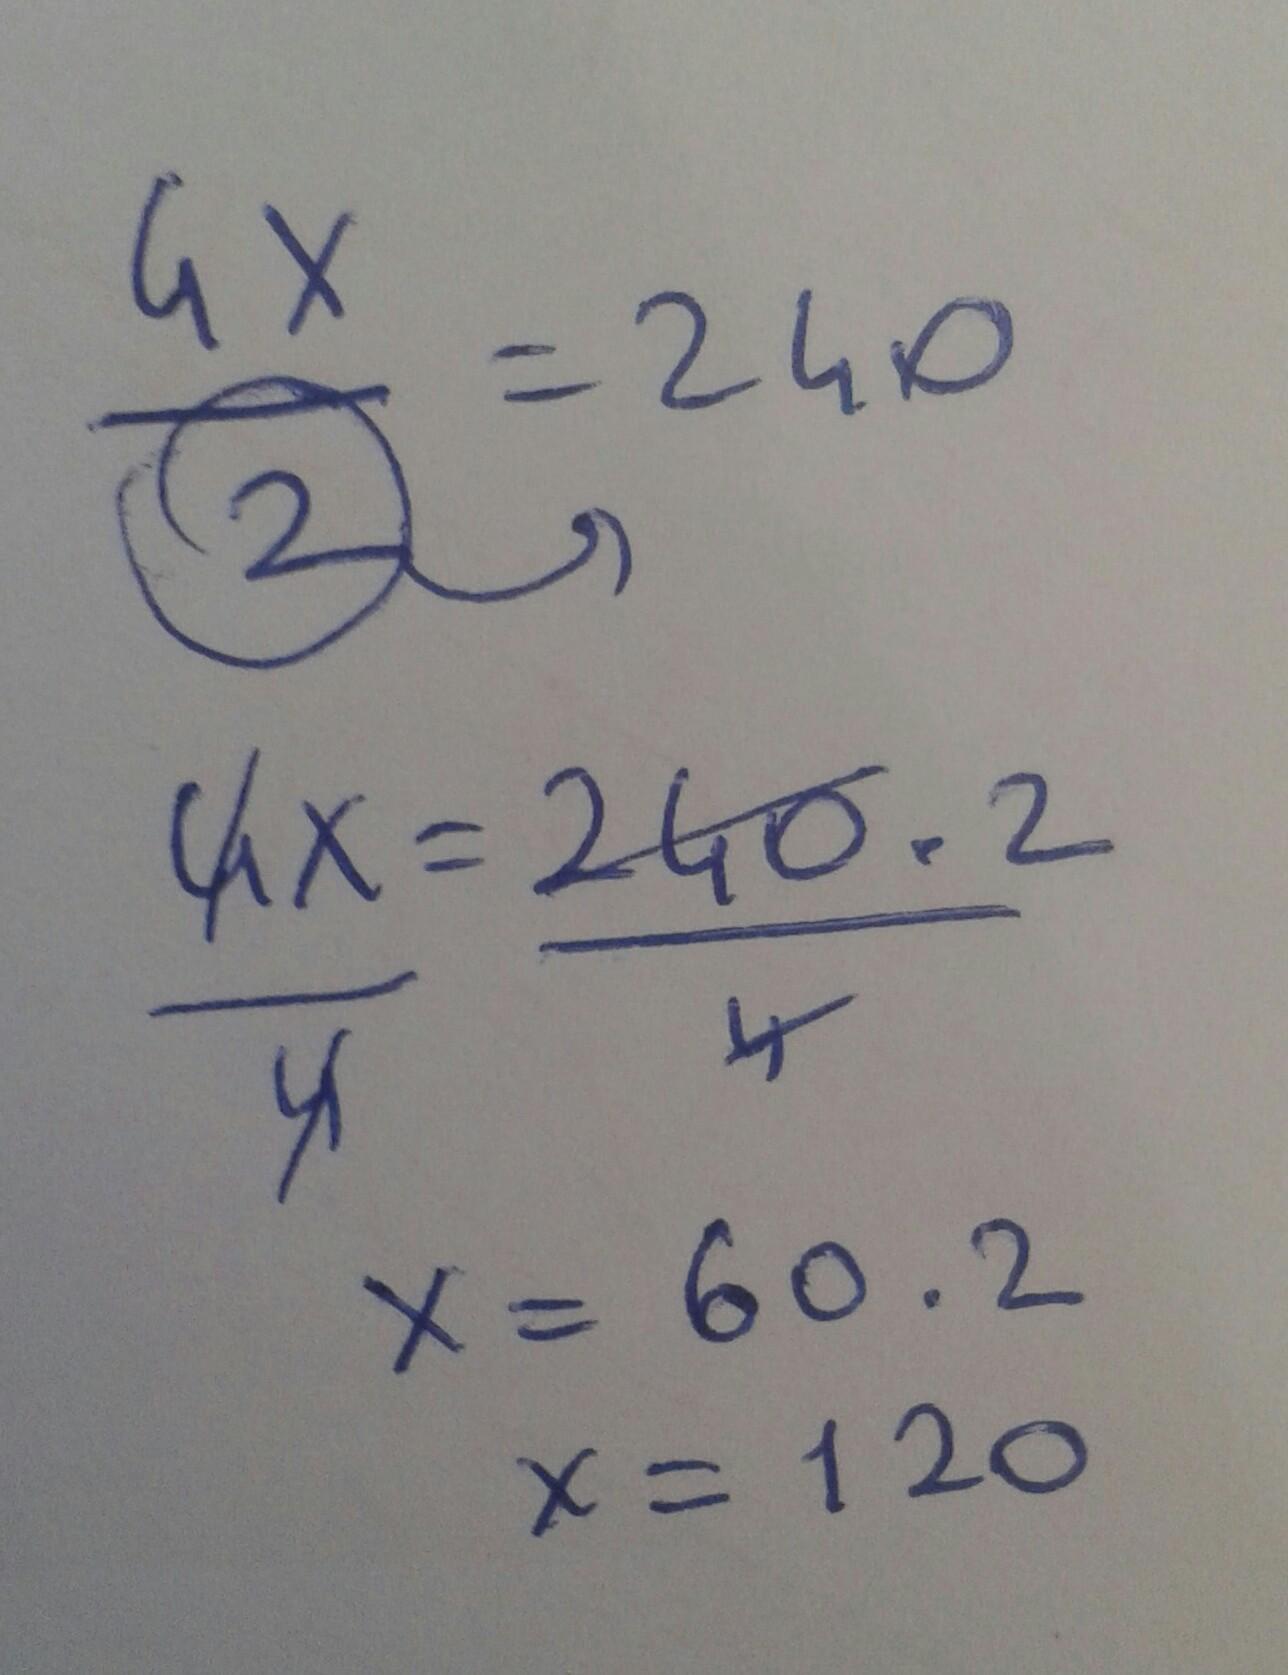 4x/2 = 240
4x/4 = 240.2/4
x = 60.2
x = 120